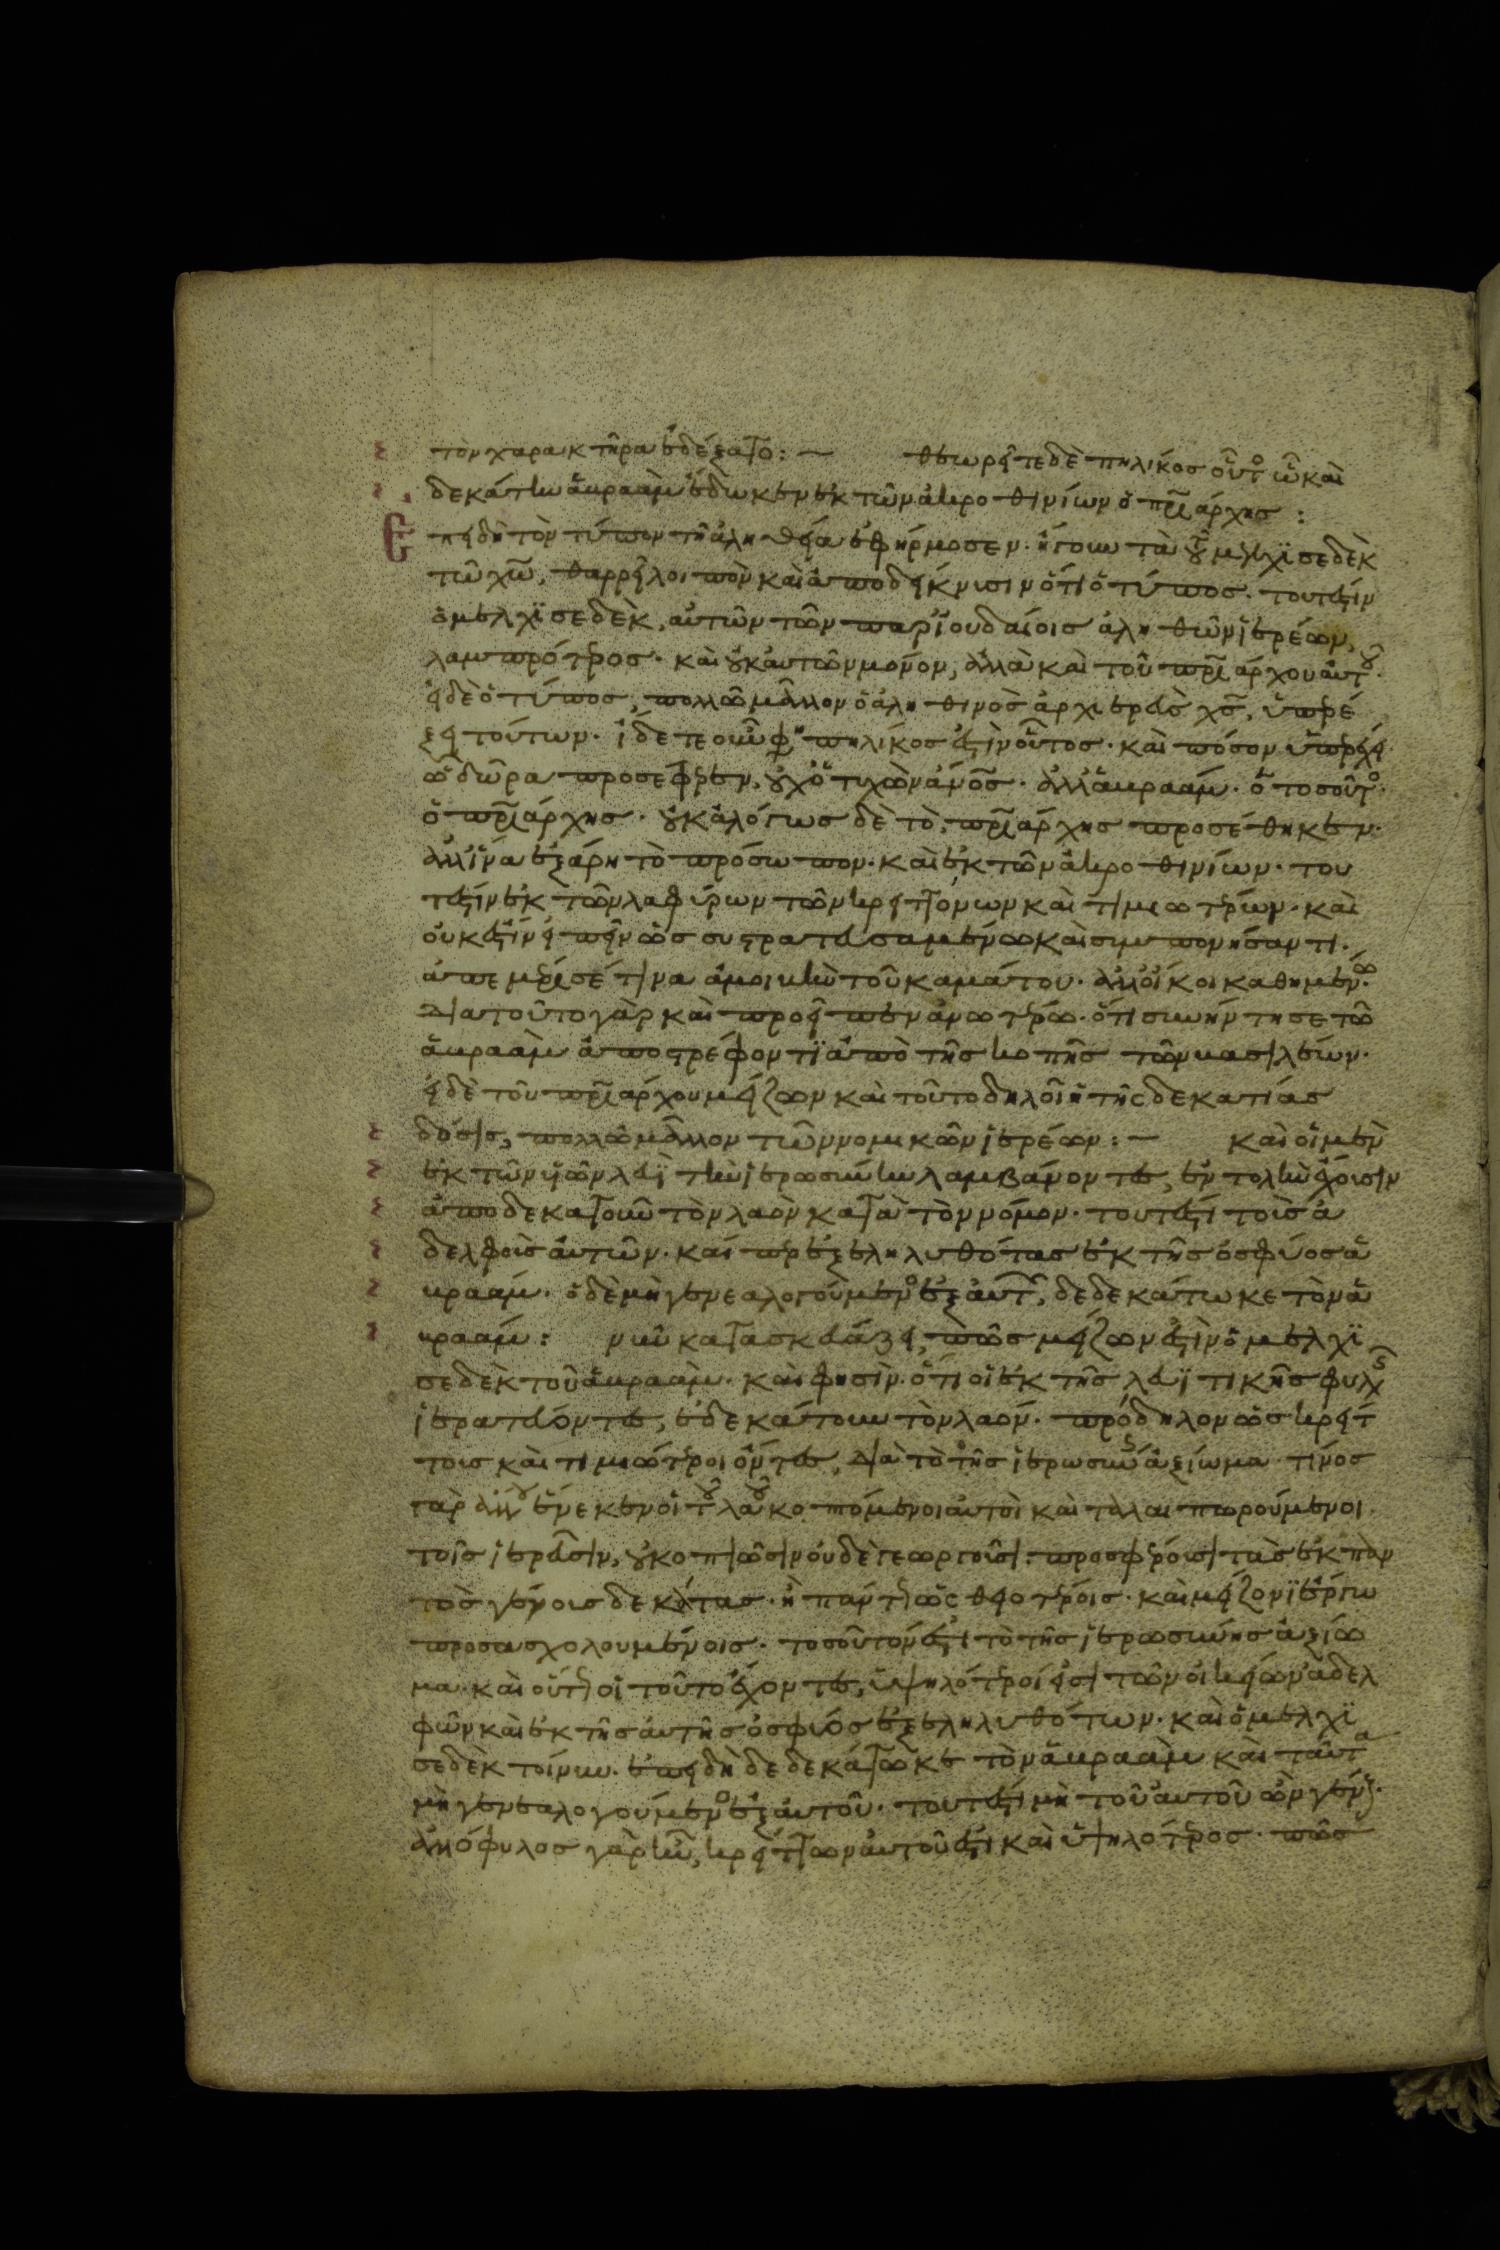 τὸν χαρακτῆρα ἐδέξατο: — θεωρεῖτε δὲ πηλίκος οὗτο ὧ καὶ
δεκάτην ἀβραὰμ ἔδωκεν ἐκ τῶν ἀκροθινίων ὁ πριάρχης :
Επειδὴ τὸν τύπον τῆ ἀληθεία ἐφήρμοσεν. ἤγουν τὰ τοῦ μελχϊσεδὲκ
τῶ χῶ, θαρρεῖ λοιπὸν καὶ ἀποδείκνυσιν ὅτι ὁ τύπος. τουτέστιν
ὁ μελχϊσεδὲκ, αὐτῶν τῶν παρ ἰουδαίοις ἀληθῶν ἱερέων,
λαμπρότερος. καὶ οὐκ αυτῶν μόνον, ἀλλὰ καὶ τοῦ πριάρχου αὐτοῦ.
εἰ δὲ ὁ τύπος, πολλῶ μᾶλλον ὁ ἀληθινὸς ἀρχιερεὺς χς, ὑπερέ
ξει τούτων. ἴδετε οὖν φη πηλίκος ἐστὶν οὗτος. καὶ πόσον ὑπερέχει
ὧ δῶρα προσέφερεν, οὐχ ὁ τυχὼν ἀνος. ἀλλ ἀβραάμ. ὁ τοσοῦτο.
ὁ πριάρχης. οὐκ ἀλόγως δὲ τὸ, πριάρχης προσέθηκεν.
ἀλλ ἵνα ἐξάρη τὸ πρόσωπον. καὶ ἐκ τῶν ἀκροθινίων. του
τέστιν ἐκ τῶν λαφύρων τῶν κρειττόνων καὶ τιμιωτέρων. καὶ
οὐκ ἔστιν εἰπεῖν ὡς συστρατευσαμένω καὶ συμπονήσαντι.
ἀπεμέρισέ τινα ἀμοιβὴν τοῦ καμάτου. ἀλλ οἴκοι καθημένω.
Διὰ τοῦτο γὰρ καὶ προεῖπεν ἀνωτέρω. ὅτι συνήντησε τῶ
ἀβραὰμ ἀποστρέφοντϊ ἀπὸ τῆς κοπῆς τῶν βασιλέων.
εἰ δὲ τοῦ πριάρχου μείζων καὶ τοῦτο δηλοῖ ἡ τῆς δεκατίας
δόσις, πολλῶ μᾶλλον τῶν νομικῶν ἱερέων : — καὶ οἱ μὲν
ἐκ τῶν υἱῶν λευῒ τὴν ἱερωσύνην λαμβάνοντες, ἐντολὴν ἔχουσιν
ἀποδεκατοῦν τὸν λαὸν κατὰ τὸν νόμον. τουτέστι τοὺς ἀ
δελφοὺς αὐτῶν. καί περ ἐξεληλυθότας ἐκ τῆς ὀσφύος ἀ
βραάμ. ὁ δὲ μὴ γενεαλογούμενο ἐξ αὐτῶν, δεδεκάτωκε τὸν ἀ
βραάμ : νῦν κατασκευάζει, πῶς μείζων ἐστὶν ὁ μελχϊ
σεδὲκ τοῦ ἀβραάμ. καὶ φησὶν. ὅτι οἱ ἐκ τῆς λευϊτικῆς φυλῆς
ἱερατεύοντες, ἐδεκάτουν τὸν λαόν. πρόδηλον ὡς κρείτ
τους καὶ τιμιώτεροι ὄντες, Διὰ τὸ τῆς ἱερωσύνης ἀξίωμα. τίνος
γὰρ ἄλλου ἕνεκεν οἱ τοῦ λαοῦ κοπόμενοι αὐτοὶ καὶ ταλαιπωρούμενοι.
τοῖς ἱερεῦσιν, οὐ κοπιῶσιν οὐδὲ γεωργοῦσι. προσφέρουσι τὰς ἐκ παν
τὸς γένους δεκάτας. ἢ πάντως ὡς θειοτέροις. καὶ μείζονϊ ἔργω
προσασχολουμένοις. τοσοῦτόν ἐστι τὸ τῆς ἱερωσύνης ἀξίω
μα. καὶ οὕτως οἱ τοῦτο ἔχοντες, ὑψηλότεροί εἰσι τῶν οἰκείων ἀδελ
φῶν καὶ ἐκ τῆς αὐτῆς ὀσφύος ἐξεληλυθότων. καὶ ὁ μελχϊ
σεδὲκ τοίνυν. ἐπειδὴ δεδεκάτωκε τὸν ἀβραὰμ καὶ ταῦτα
μὴ γενεαλογούμενο ἐξ αὐτοῦ. τουτέστι μὴ τοῦ αὐτοῦ ὢν γένους.
ἀλλόφυλος γὰρ ἦν, κρείττων αὐτοῦ ἐστι καὶ ὑψηλότερος. πῶς